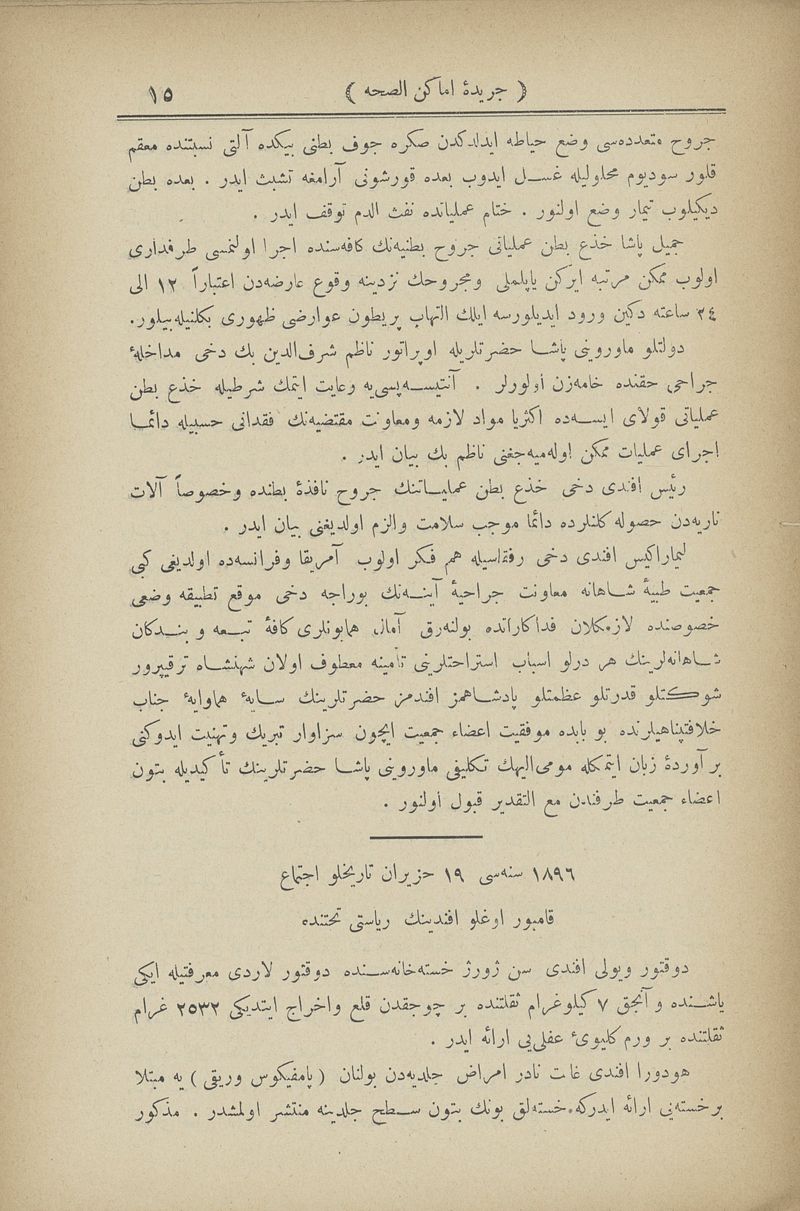 ﴿ جريدۀ اماكن الصحه ﴾
١٥
جروح متعدده‌سی وضع حياطه ايدلدكدن صكره جوف بطنی بيكده آلتی نسبتنده معقم
قلور سوديوم محلوليله غسـل ايدوب بعده قورشونی آرامغه تشبث ايدر . بعده بطن
ديكيلوب تيمار وضع اولنور . ختام عملياتده نفث الدم توقف ايدر .
جميل پاشا خذع بطن عملياتی جروح بطنيه‌نك كافه‌سنده اجرا اولنمسی طرفداری
اولوب ممكن مرتبه ايركن ياپلملی ومجروحك نزدينه وقوع عارضه‌دن اعتباراً ١٢ الی
٢٤ ساعته دكين ورود ايديلورسه ايلك التهاب پريطون عوارضی ظهوری بكلنيله‌بيلور.
دولتلو ماورويني پاشـا حضرتلريله اوپراتور ناظم شرف‌الدين بك دخی مداخلۀ
جراحی حقنده خامه‌زن اولورلر . آنتيسـه‌پسی‌يه رعايت ايتمك شرطيله خذع بطن
عملياتی قولای ايسـه‌ده اكثريا مواد لازمه ومعاونت مقتضيه‌نك فقدانی حسبيله دائمـا
اجرای عمليات ممكن اوله‌ميه‌جغنی ناظم بك بيان ايدر .
رئيس افندی دخی خذع بطن عمليـاتنك جروح نافذۀ بطنده وخصوصاً آلات
ناريه‌دن حصوله كلنلرده دائما موجب سلامت والزم اولديغنی بيان ايدر .
ليماراكيس افندی دخی رفقاسيله هم فكر اولوب آمريقا وفرانسه‌ده اولديغی كبی
جمعيت طبيۀ شـاهانه معاونت جراحيۀ آينـه‌نك بوراجه دخی موقع تطبيقه وضعی
خصوصنده لازمكلان فداكاراتده بولنه‌رق آمال همايونلری كافۀ تبـعه و بنـدكان
شـاهانه‌لرينك هر درلو اسباب استراحتلرينی تأمينه معطوف اولان شهنشـاه ترقيپرور
شوكتلو قدرتلو عظمتلو پادشـاهمز افندمز حضرتلرينك سـايۀ هماوايۀ جناب
خلافتپناهيلرنده بو بابده موفقيت اعضاء جمعيت ايچون سزاوار تبريك وتهنيت ايدوكنی
برآوردۀ زبان ايتمكله مومی‌اليهك تكليفی ماورويني پاشـا حضرتلرينك تأكيديله بتون
اعضاء جمعيت طرفندن مع التقدير قبول اولنور .
١٨٩٦ سنه‌سی ١٩ حزيران تاريخلو اجتماع
قامبور اوغلو افندينك رياستی تحتنده
دوقتور ويولی افندی سن ژورژ خسته‌خانه‌سـنده دوقتور لاردی معرفتيله ايكی
ياشـنده و آنجق ٧ كيلوغرام ثقلتنده بر چوجقدن قلع واخراج ايتديكی ٢٥٣٢ غرام
ثقلتنده بر ورم كليوئ عفلی‌یی ارائه ايدر .
هودورا افندی غات نادر امراض جلديه‌دن بولنان ( پامفيكوس وريقی ) يه مبتلا
برخسته‌یی ارائه ايدركه خسته‌لق بونك بتون سـطح جلدينه منتشر اولمشدر . مذكور